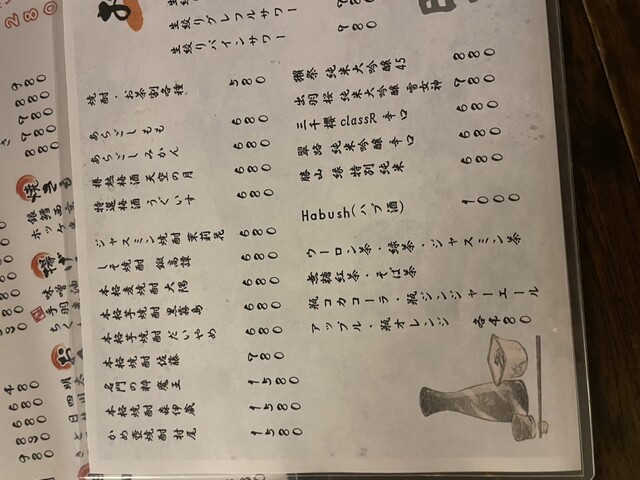 生絞りグレフルサワー
生絞りパインサワー 780
焼酎・お茶割各種 580
あらごしもも 680
あらごしみかん 680
樽熟梅酒 天空の月 680
特選梅酒 うぐいす 680
ジャスミン焼酎 茉莉花 680
しそ焼酎 鍛高譚 680
本格麦焼酎 大隅 680
本格芋焼酎 黒霧島 680
本格芋焼酎 だいやめ 680
本格焼酎 佐藤 780
名門の粋 魔王 1580
本格焼酎 森伊蔵 1580
かめ壺焼酎 村尾 1580
獺祭 純米大吟醸 45 880
出羽桜 純米大吟醸 雪女神 780
三千櫻 classR 辛口 680
翠路 純米吟醸 辛口 680
勝山 縁 特別純米 680
Habush(ハブ酒) 1000
ウーロン茶・緑茶・ジャスミン茶
無糖紅茶・そば茶
瓶コカコーラ・瓶ジンジャーエール
アップル・瓶オレンジ 各480
お
280
980
880
780
880
焼き
銀鱈
ホッケ
揚げ
味噌
手羽
480
680
880
980
980